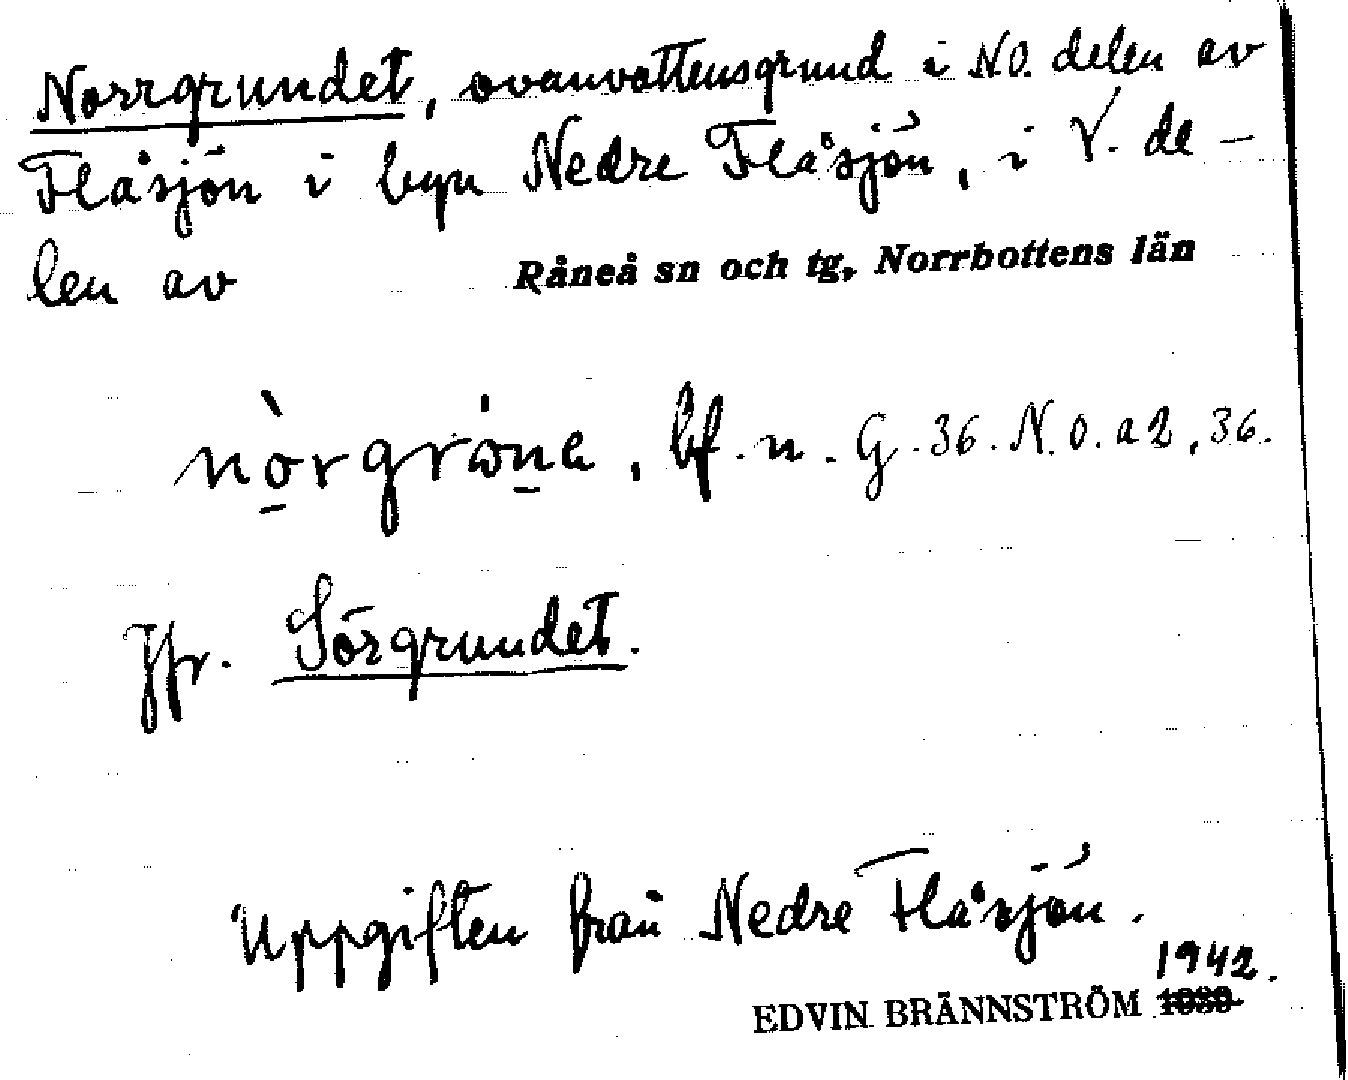 Norrgrundet, ovanvattensgrund i NO. delen av
Flåsjön i byn Nedre Flåsjön, i V. de-
len av Råneå sn och tg, Norrbottens län
bf. n. G. 36. N. O. a 2, 36.
Jfr. Sörgrundet.
Uppgiften från Nedre Flåsjön.
1942.
EDVIN BRÄNNSTRÖM